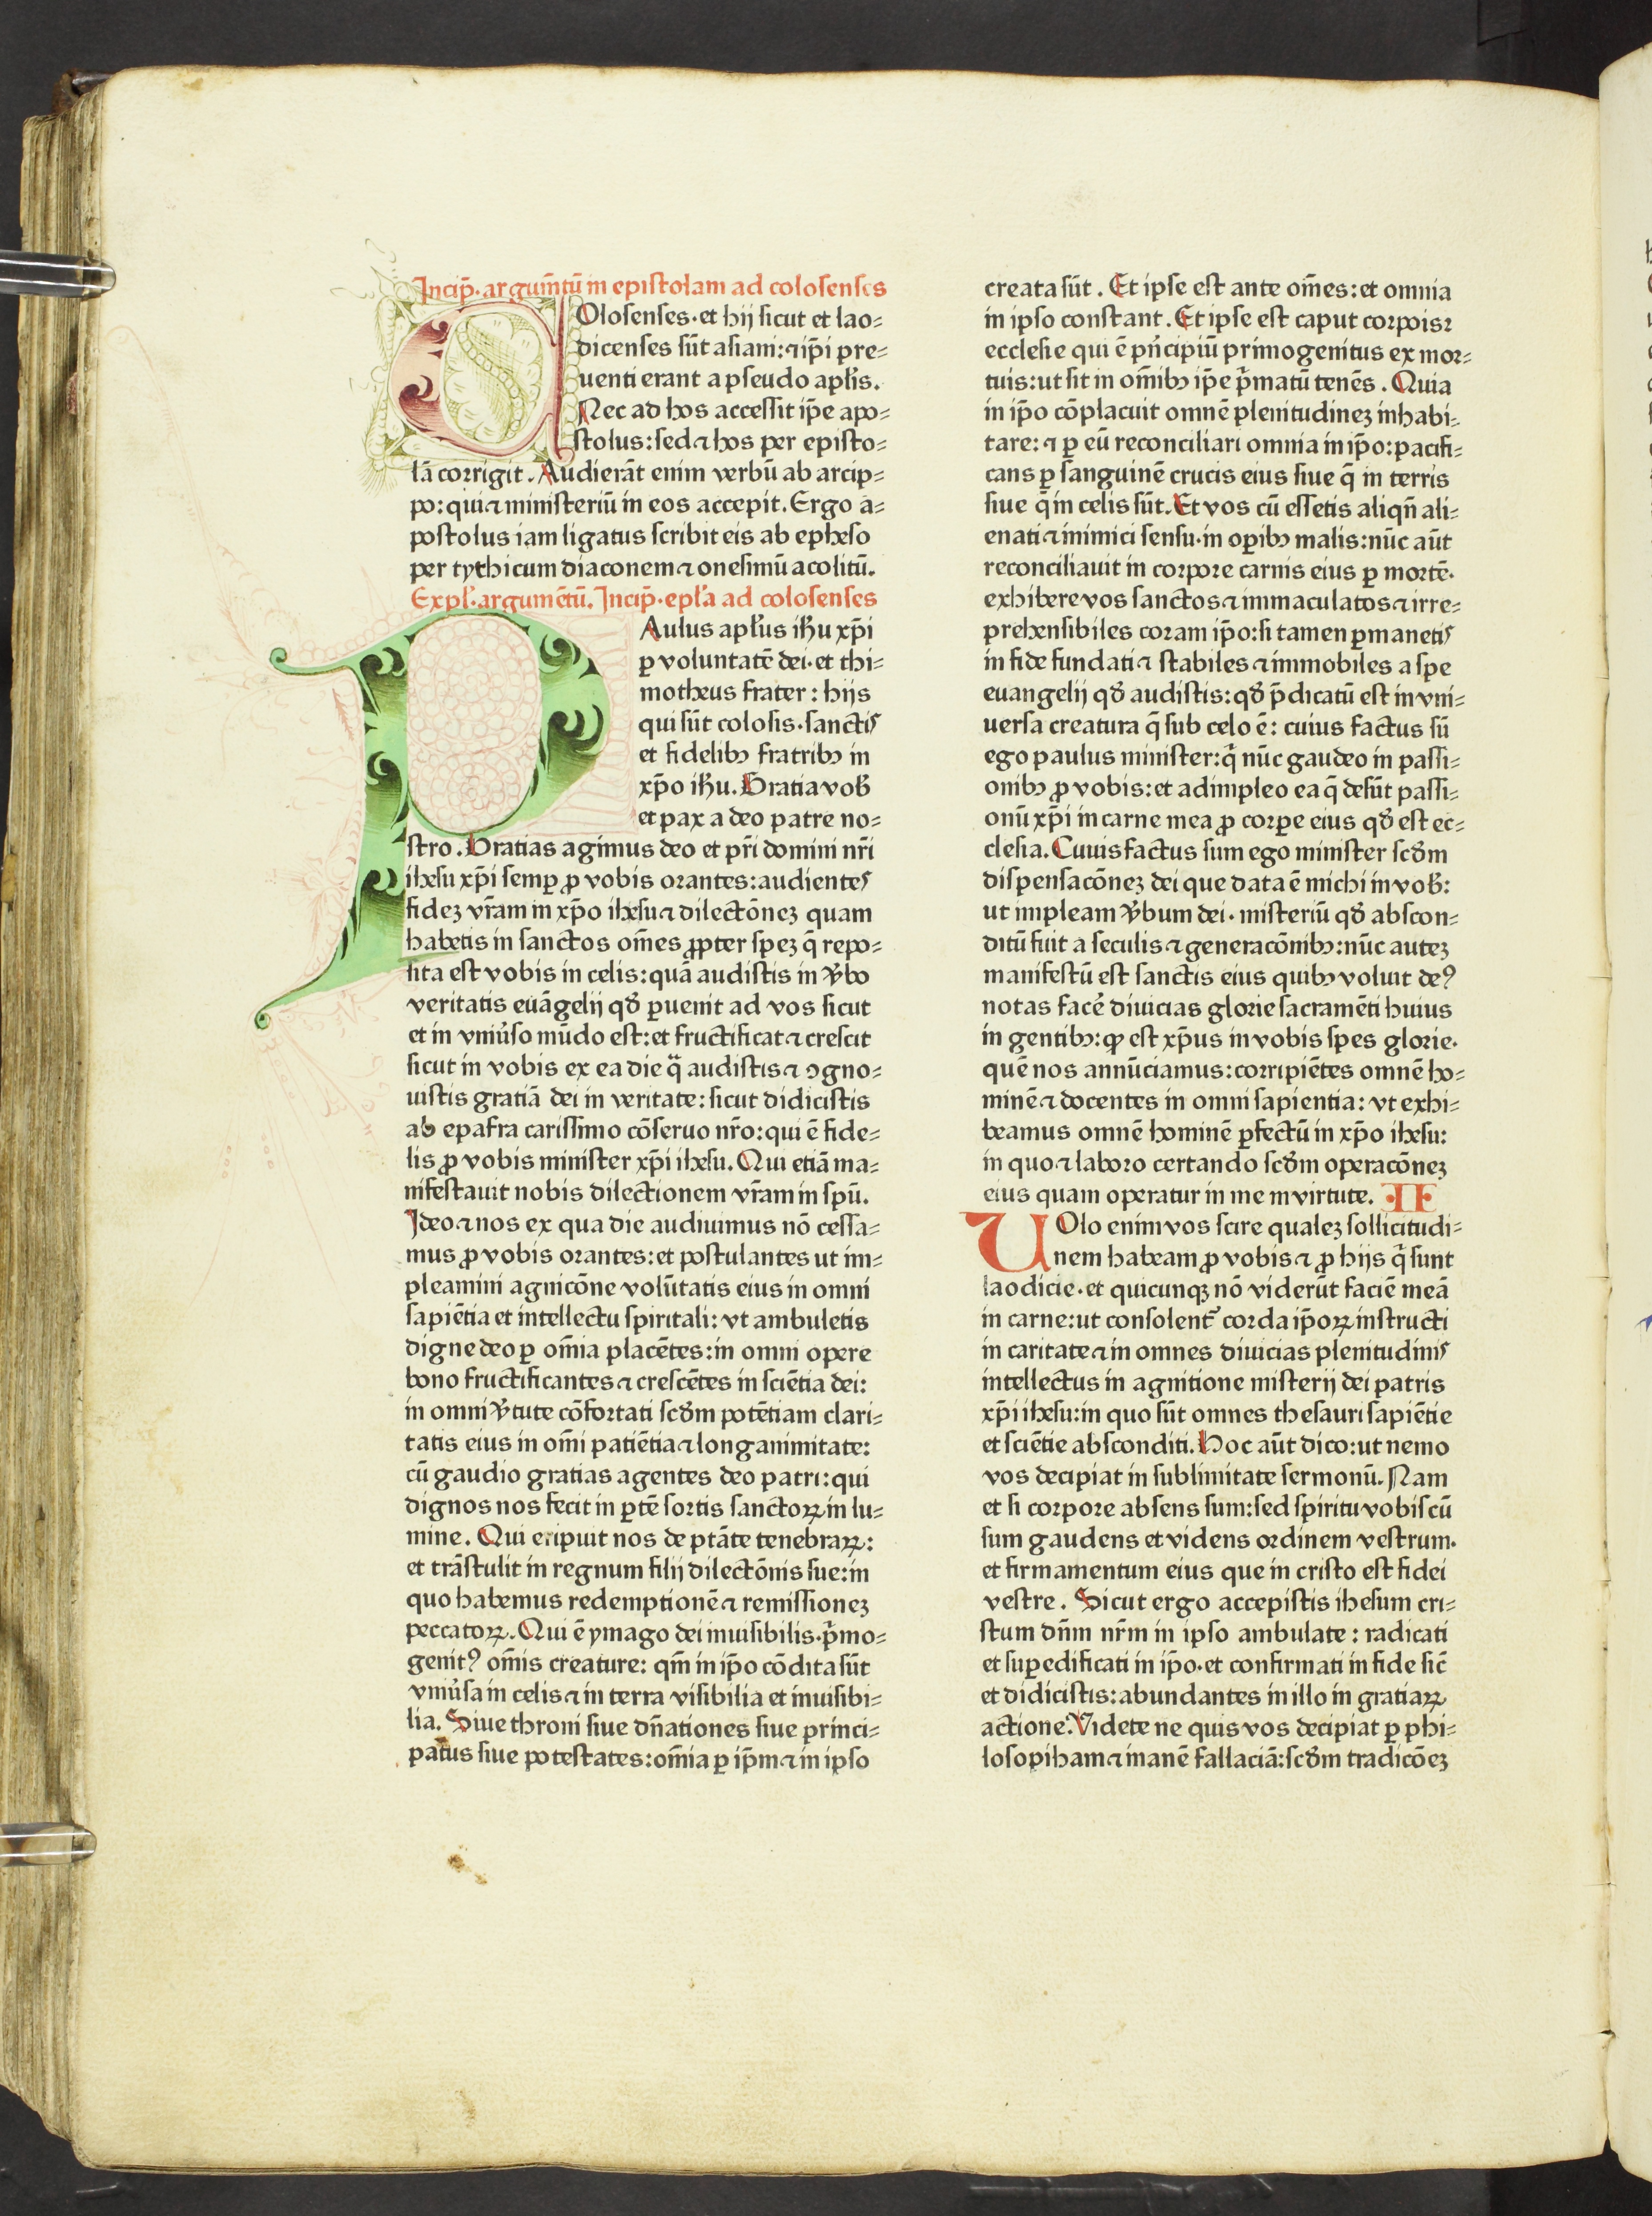 Incip̄. argum̄tū in epistolam ad colosenses
COlosenses. et hij sicut et lao=
dicenses sūt asiani: ⁊ ip̄i pre=
uenti erant a pseudo apl̄is.
Nec ad hos accessit ip̄e apo=
stolus: sed ⁊ hos per episto=
lā corrigit. Audierāt enim verbū ab arcip=
po: qui ⁊ ministeriū in eos accepit. Ergo a=
postolus iam ligatus scribit eis ab epheso
per tythicum diaconem ⁊ onesimū acolitū.
Expl̄. argumētū. Incip̄. epl̄a ad colosenses
PAulus apl̄us ih̄u xp̄i
ꝑ voluntatē dei. et thi=
motheus frater: hijs
qui sūt colosis. sanctis
et fidelibꝫ fratribꝫ in
xp̄o ih̄u. Gratia vob̄
et pax a deo patre no=
stro. Gratias agimus deo et pr̄i domini nr̄i
ihesu xp̄i semꝑ ꝓ vobis orantes: audientes
fideꝫ vr̄am in xp̄o ihesu ⁊ dilectōneꝫ quam
habetis in sanctos om̄es ꝓpter speꝫ q̄ repo=
sita est vobis in celis: quā audistis in v̓bo
veritatis euāgelij qd̄ ꝑuenit ad vos sicut
et in vniu̓so mūdo est: et fructificat ⁊ crescit
sicut in vobis ex ea die qᷓ audistis ⁊ ꝯgno=
uistis gratiā dei in veritate: sicut didicistis
ab epafra carissimo cōseruo nr̄o: qui ē fide=
lis ꝓ vobis minister xp̄i ihesu. Qui etiā ma=
nifestauit nobis dilectionem vr̄am in spū.
Ideo ⁊ nos ex qua die audiuimus nō cessa=
mus ꝓ vobis orantes: et postulantes ut im=
pleamini agnicōne volūtatis eius in omni
sapiētia et intellectu spiritali: vt ambuletis
digne deo ꝑ om̄ia placētes: in omni opere
bono fructificantes ⁊ crescētes in sciētia dei:
in omni v̓tute cōfortati scd̄m potētiam clari=
tatis eius in om̄i patiētia ⁊ longanimitate:
cū gaudio gratias agentes deo patri: qui
dignos nos fecit in ꝑtē sortis sanctoꝝ in lu=
mine. Qui eripuit nos de ptāte tenebraꝝ:
et trāstulit in regnum filij dilectōnis sue: in
quo habemus redemptionē ⁊ remissioneꝫ
peccatoꝝ. Qui ē ymago dei inuisibilis. p̄mo=
genitꝰ om̄is creature: qm̄ in ip̄o cōdita sūt
vniu̓sa in celis ⁊ in terra visibilia et inuisibi=
lia. Siue throni siue dn̄ationes siue princi=
patus siue potestates: om̄ia ꝑ ip̄m ⁊ in ipso
creata sūt. Et ipse est ante om̄es: et omnia
in ipso constant. Et ipse est caput corpoisꝛ
ecclesie qui ē pn̄cipiū primogenitus ex mor=
tuis: ut sit in om̄ibꝫ ip̄e p̄matū tenēs. Quia
in ip̄o cōplacuit omnē plenitudineꝫ inhabi=
tare: ⁊ ꝑ eū reconciliari omnia in ip̄o: pacifi=
cans ꝑ sanguinē crucis eius siue q̄ in terris
siue q̄ in celis sūt. Et vos cū essetis aliqn̄ ali=
enati ⁊ inimici sensu. in oꝑibꝫ malis: nūc aūt
reconciliauit in corpore carnis eius ꝑ mortē.
exhibere vos sanctos ⁊ immaculatos ⁊ irre=
prehensibiles coram ip̄o: si tamen ꝑmanetis
in fide fundati ⁊ stabiles ⁊ immobiles a spe
euangelij qd̄ audistis: qd̄ p̄dicatū est in vni=
uersa creatura q̄ sub celo ē: cuius factus sū
ego paulus minister: q̄ nūc gaudeo in passi=
onibꝫ ꝓ vobis: et adimpleo ea q̄ desūt passi=
onū xp̄i in carne mea ꝓ corꝑe eius qd̄ est ec=
clesia. Cuius factus sum ego minister scd̄m
dispensacōneꝫ dei que data ē michi in vob̄:
ut impleam v̓bum dei. misteriū qd̄ abscon=
ditū fuit a seculis ⁊ generacōnibꝫ: nūc auteꝫ
manifestū est sanctis eius quibꝫ voluit deꝰ
notas face̓ diuicias glorie sacramēti huius
in gentibꝫ: qꝙ est xp̄us in vobis spes glorie.
quē nos annūciamus: corripiētes omnē ho=
minē ⁊ docentes in omni sapientia: vt exhi=
beamus omnē hominē ꝑfectū in xp̄o ihesu:
in quo ⁊ laboro certando scd̄m operacōneꝫ
eius quam operatur in me in virtute. .II.
UOlo enim vos scire qualeꝫ sollicitudi=
nem habeam ꝓ vobis ⁊ ꝓ hijs q̄ sunt
laodicie. et quicunqꝫ nō viderūt faciē meā
in carne: ut consolent᷑ corda ip̄oꝝ instructi
in caritate ⁊ in omnes diuicias plenitudinis
intellectus in agnitione misterij dei patris
xp̄i ihesu: in quo sūt omnes thesauri sapiētie
et sciētie absconditi. Hoc aūt dico: ut nemo
vos decipiat in sublimitate sermonū. Nam
et si corpore absens sum: sed spiritu vobiscū
sum gaudens et videns ordinem vestrum.
et firmamentum eius que in cristo est fidei
vestre. Sicut ergo accepistis ihesum cri=
stum dn̄m nr̄m in ipso ambulate: radicati
et suꝑedificati in ip̄o. et confirmati in fide sic̄
et didicistis: abundantes in illo in gratiaꝝ
actione. Videte ne quis vos decipiat ꝑ phi=
losopiham ⁊ inanē fallaciā: scd̄m tradicōeꝫ